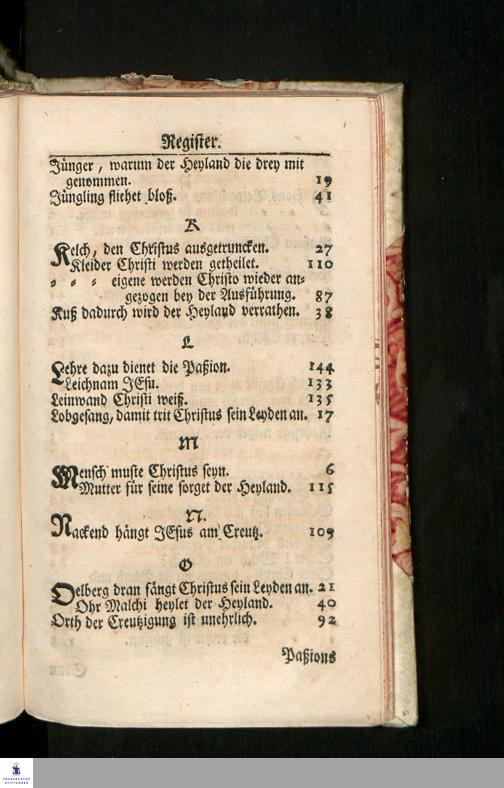 Register.
Jünger, warum der Heyland die drey mit
genommen. 19
Jüngling fliehet bloß. 41
K
Kelch, den Christus ausgetruncken. 27
Kleider Christi werden getheilet. 110
= = = eigene werden Christo wieder an=
gezogen bey der Ausführung. 87
Kuß dadurch wird der Heyland verrathen. 38
L
Lehre dazu dienet die Paßion. 144
Leichnam JEsu. 133
Leinwand Christi weiß. 135
Lobgesang, damit trit Christus sein Leyden an. 17
M
Mensch muste Christus seyn. 6
Mutter für seine sorget der Heyland. 115
N.
Nackend hängt JEsus am Creutz. 109
O
Oelberg dran fängt Christus sein Leyden an. 21
Ohr Malchi heylet der Heyland. 40
Orth der Creutzigung ist unehrlich. 92
Paßions
FRANCKESCHE
STIFTUNGEN